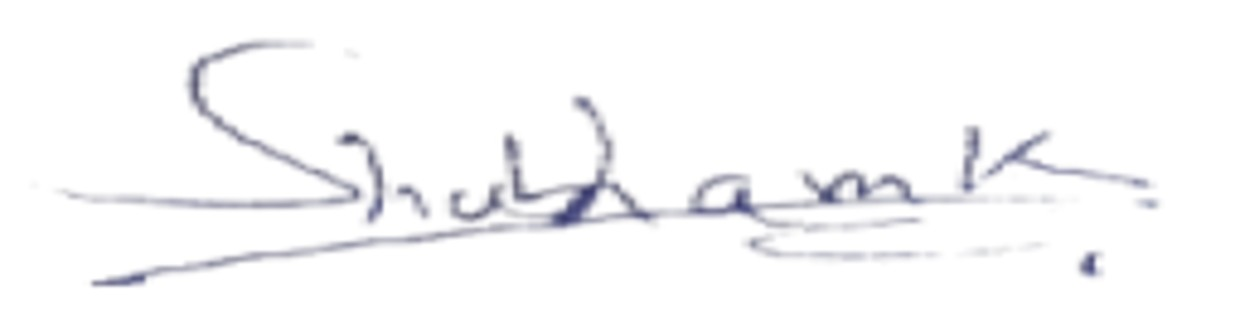 Shubham K.